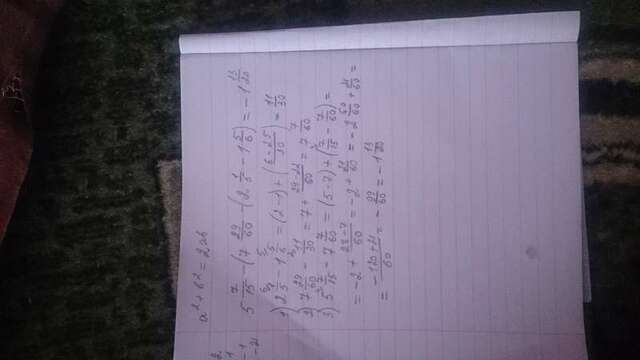 a² + b² = 2ab
5 7/15 - (7 29/60 - (2 1/5 - 1 5/6)) = -1 13/20
1) 2 1/5 - 1 5/6 = (2-1) + (6-25/30) = 11/30
2) 7 29/60 - 11/30 = 7 + 29-22/60 = 7 7/60
3) 5 7/15 - 7 7/60 = (5-7) + (7/15 - 7/60) =
= -2 + 28-7/60 = -2 + 21/60 = -2 60/60 + 21/60 =
= -120+21/60 = -99/60 = -1 13/20